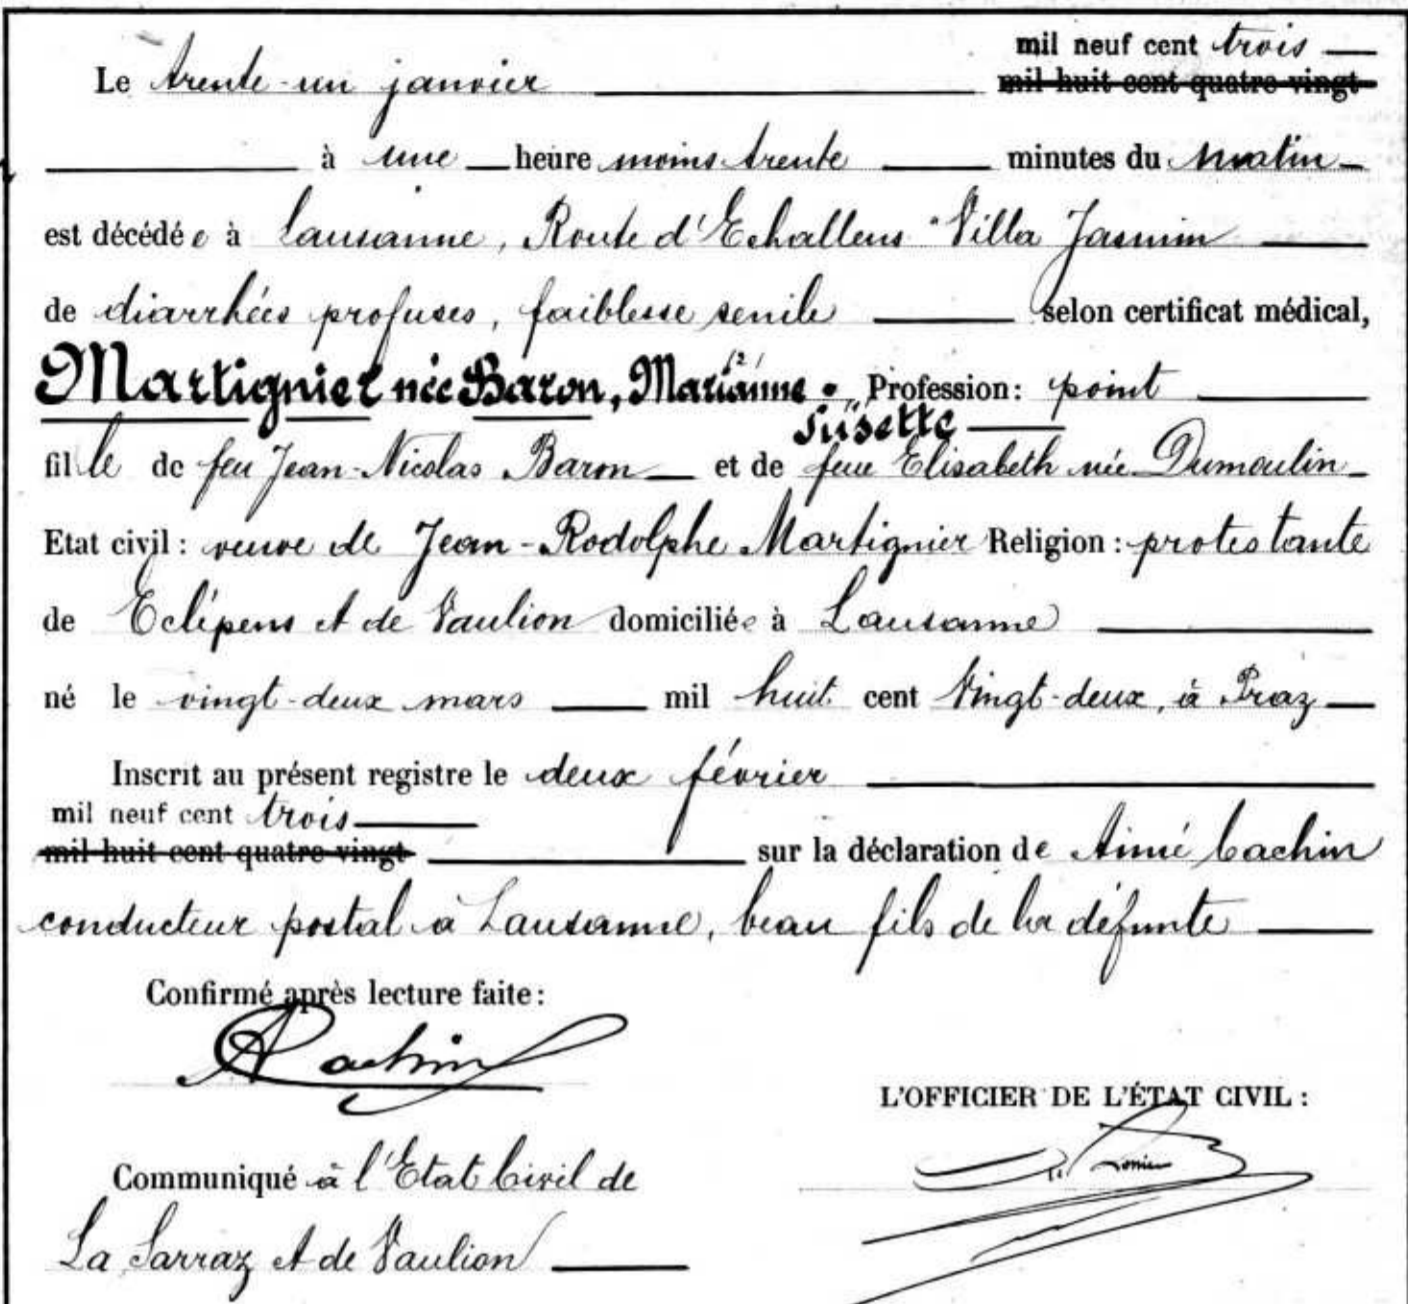 mil neuf cent trois
Le trente-un janvier mil huit cent quatre-vingt
à une heure moins trente minutes du matin
est décédée à Lausanne, Route d'Echallens "Villa Jasmin
de diarrhées profuses, faiblesse senile selon certificat médical,
Martignier née Baron, Marianne Profession: point
Susette
fille de feu Jean-Nicolas Baron et de feue Elisabeth née Dumoulin
Etat civil: veuve de Jean-Rodolphe Martignier Religion: protestante
de Eclépens et de Vaulion domiciliée à Lausanne
né le vingt-deux mars mil huit cent vingt-deux, à Praz
Inscrit au présent registre le deux février
mil neuf cent trois
mil huit cent quatre-vingt sur la déclaration de Aimé Cachin
conducteur postal à Lausanne, beau fils de la défunte
Confirmé après lecture faite:
A Cachin
L'OFFICIER DE L'ÉTAT CIVIL:
Communiqué à l'Etat Civil de
La Sarraz et de Vaulion